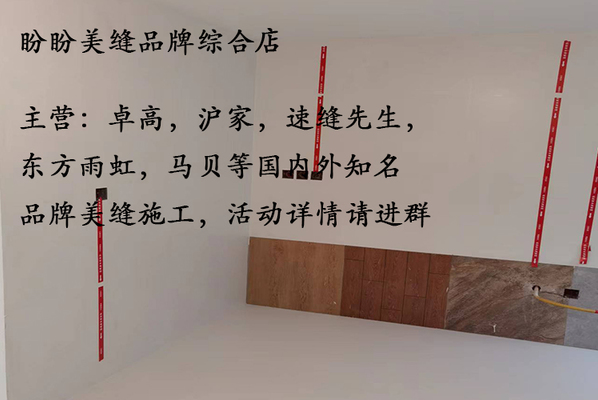 盼盼美缝品牌综合店
主营：卓高，沪家，速缝先生，
东方雨虹，马贝等国内外知名
品牌美缝施工，活动详情请进群